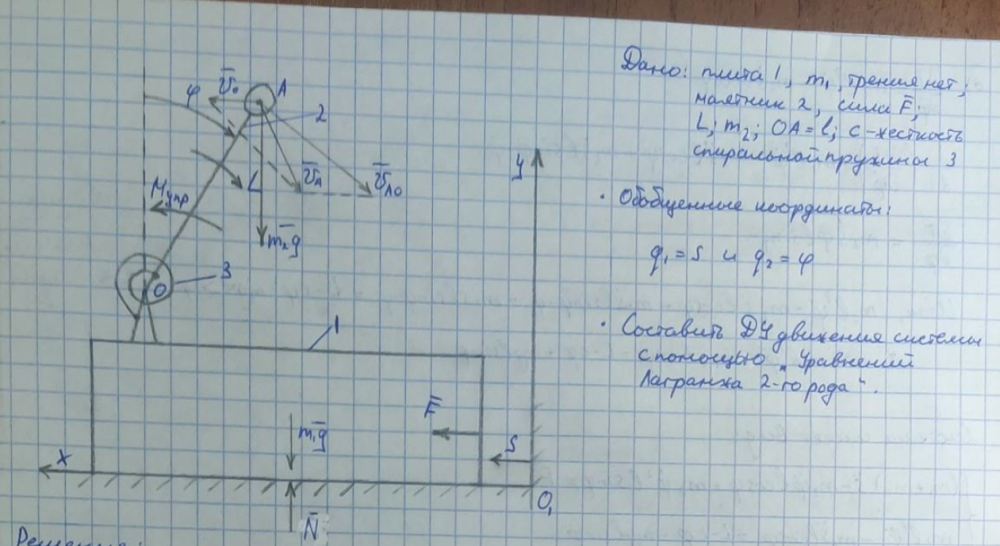 Дано: плита 1, m₁, трения нет;
маятник 2, сила F̄;
L; m₂; OA = l; c - жесткость
спиральной пружины 3
· Обобщенные координаты:
q₁ = s и q₂ = φ
· Составить ДУ движения системы
с помощью „Уравнений
Лагранжа 2-го рода".
φ
v̄₀
A
2
v̄A
v̄AO
L
Mупр
m₂g̅
O
3
1
y
F̄
m₁g̅
S
X
O₁
N̄
Решение: